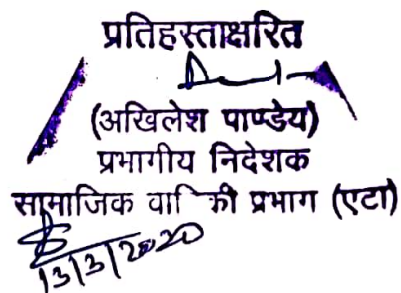 प्रतिहस्ताक्षरित
(अखिलेश पाण्डेय)
प्रभागीय निदेशक
सामाजिक वा की प्रभाग (एटा)
13/3/2020